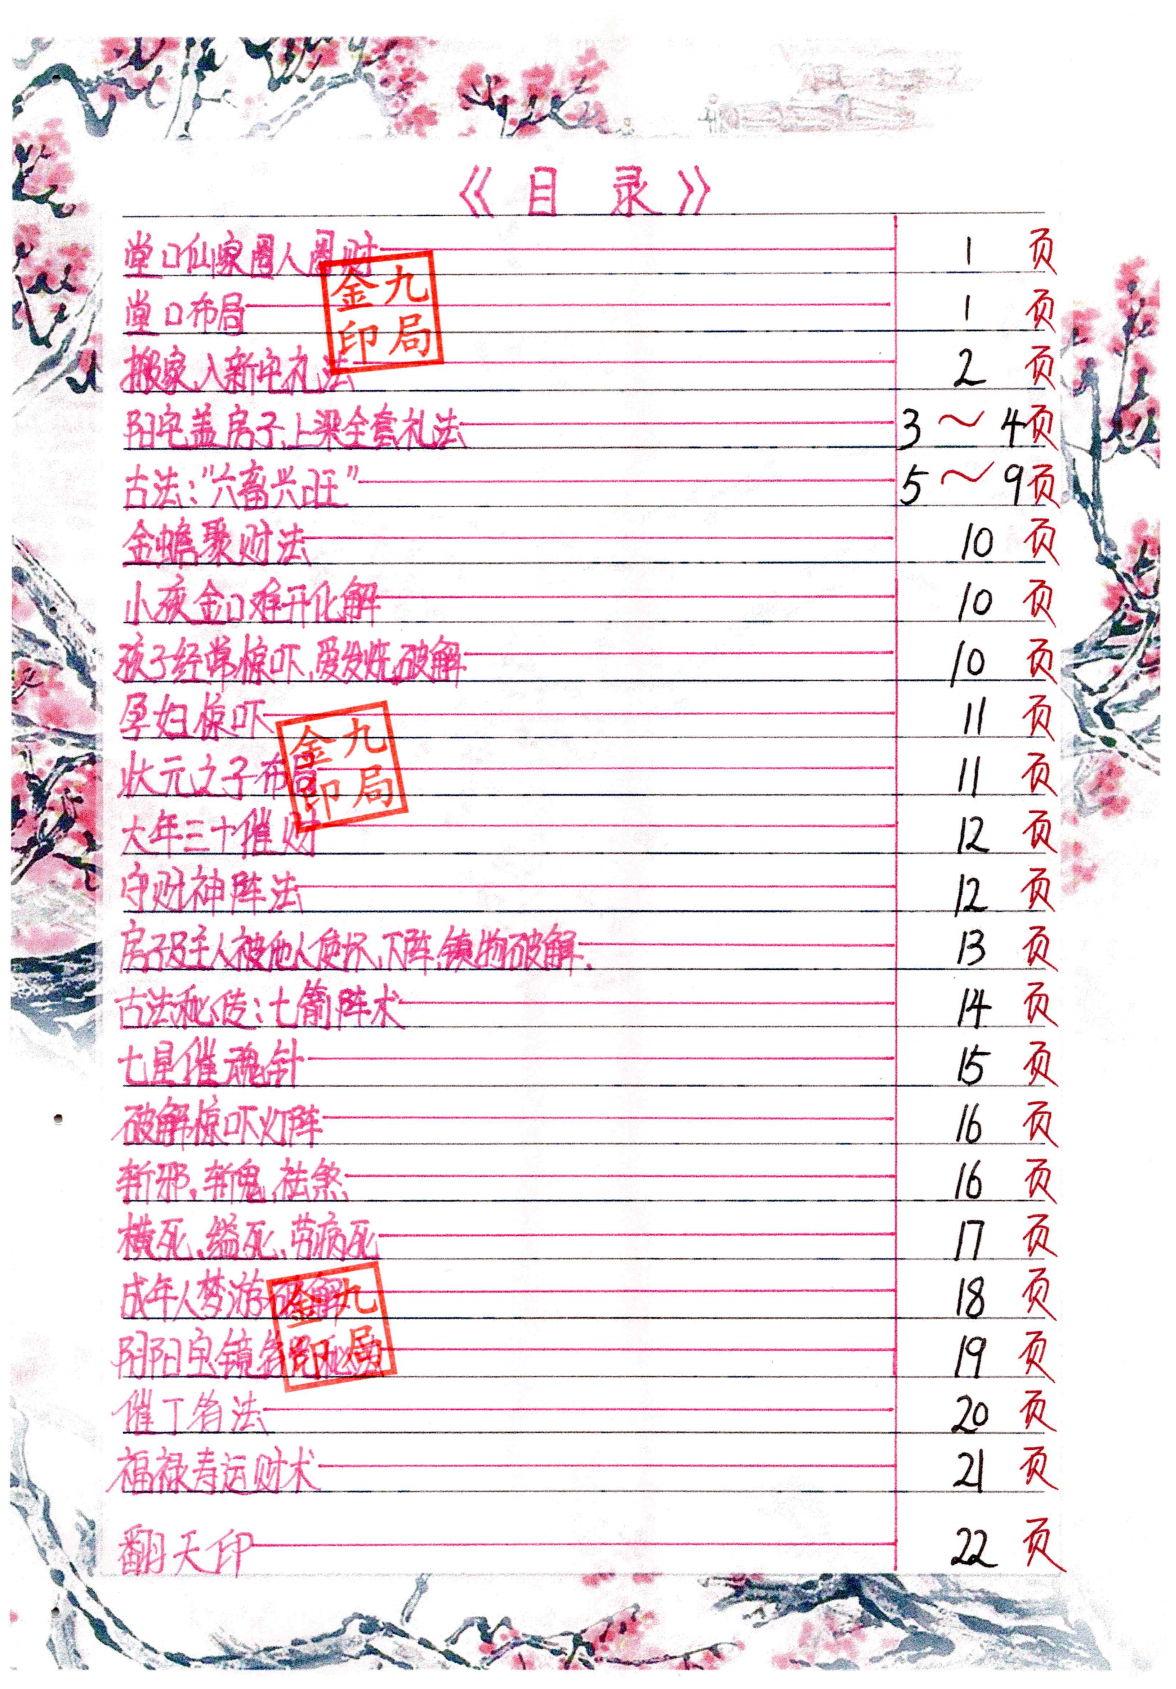 《目录》
堂口仙家圈人圈财 1页
堂口布局 1页
搬家入新宅礼法 2页
阳宅盖房子上梁全套礼法 3～4页
古法:“六畜兴旺” 5～9页
金蟾聚财法 10页
小孩金口难开化解 10页
孩子经常惊吓,爱发烧破解 10页
孕妇惊吓 11页
状元之子布局 11页
大年三十催财 12页
守财神阵法 12页
房子及主人被他人使坏,下阵,镇物破解. 13页
古法秘传:七箭阵术 14页
七星催魂针 15页
破解惊吓灯阵 16页
斩邪,斩鬼,祛煞, 16页
横死,缢死,劳病死 17页
成年人梦游破解 18页
阴阳宅镜 19页
催丁 法 20页
福禄寿运财术 21页
翻天印 22页
九局金印
九局金印
九局金印